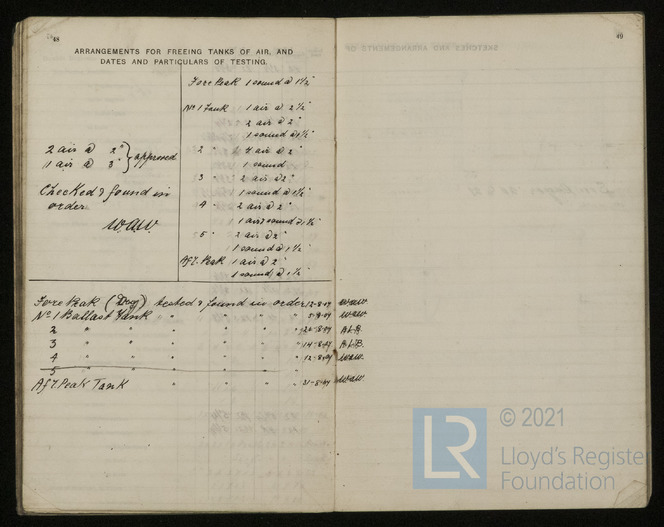 48
ARRANGEMENTS FOR FREEING TANKS OF AIR, AND
DATES AND PARTICULARS OF TESTING.
Fore Peak 1 sound @ 1½"
No 1 Tank 1 air @ 2½"
2 air @ 2"
1 sound @ 1½"
2 " 4 air @ 2"
1 sound
3 " 2 air @ 2"
1 sound @ 1½"
4 " 2 air @ 2"
1 air & sound @ 1½"
5 " 2 air @ 2"
1 sound @ 1½"
Aft. Peak 1 air @ 2"
1 sound @ 1½"
2 air @ 2"
1 air @ 3"
approved
Checked & found in
order
W.A.W.
Fore Peak (Dry) tested & found in order 12-8-09 W.A.W.
No 1 Ballast Tank " " " " 5-9-09 W.A.W.
2 " " " " " " A.L.B.
3 " " " " " " 14-8-09 A.L.B.
4 " " " " " " 12-8-09 W.A.W.
5
Aft Peak Tank " " " " 31-8-09 W.A.W.
49
SKETCHES AND ARRANGEMENTS OF
LR
© 2021
Lloyd's Register
Foundation